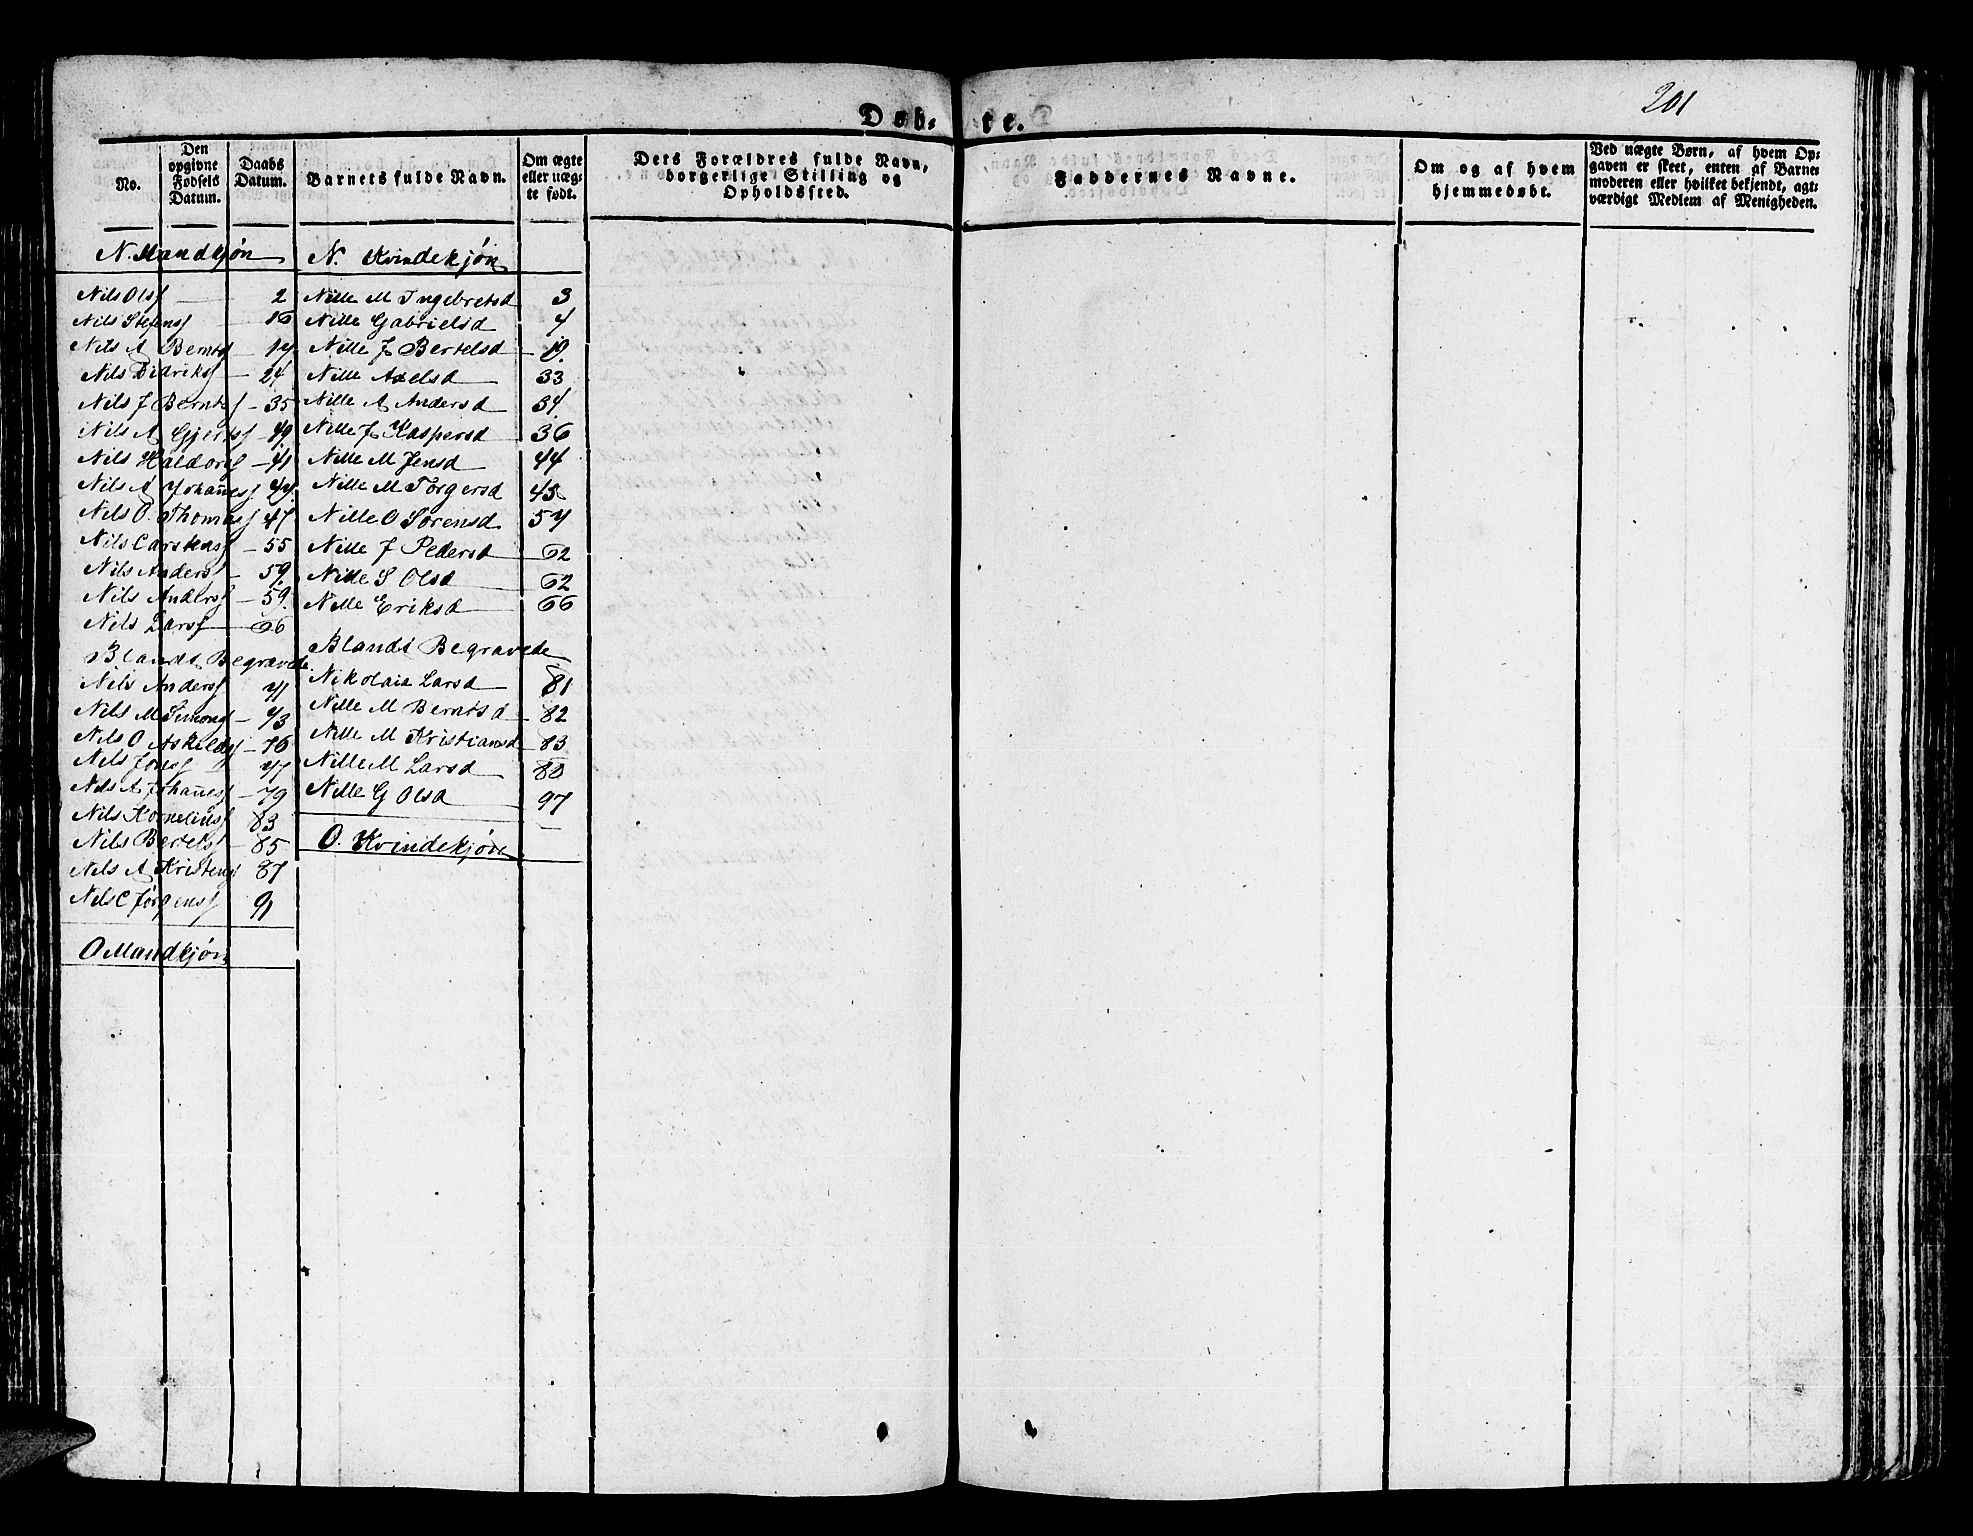 201
Døb- te.
No.
Den opgivne Fødsels Datum.
Daabs Datum.
Barnets fulde Navn.
Om ægte eller uægte født.
Dets Forældres fulde Navn, borgerlige Stilling og Opholdssted.
Faddernes Navne.
Om og af hvem hjemmedøbt.
Ved uægte Børn, af hvem Opgaven er skeet, enten af Barnemoderen eller hvilket bekjendt, agtværdigt Medlem af Menigheden.
N. Mandkjøn
Nils Olsf 2
Nils Stefensf 16
Nils A Berntsf
Nils Didriksf 24
Nils J Berntsf 35
Nils A Gjertsf
Nils Haldorsf 41
Nils A Johan̄esf.
Nils O. Thomasf 47
Nils Carstensf 55
Nils Andersf 59.
Nils Andersf 59.
Nils Larsf 66
Blandt Begravede
Nils Andersf 71
Nils M Simonsf 73
Nils O Askildsf 76
Nils Jonsf 77
Nils A Johan̄esf 79
Nils Korneliusf 83
Nils Bertelsf 85
Nils A Kristensf 87
Nils C Jörgensf 91
O Mandkjøn
N. Kvindekjøn
Nille M Ingebretsd 3
Nille Gabrielsd 4
Nille J Bertelsd 19.
Nille Axelsd 33
Nille A Andersd 34.
Nille J Kaspersd 36
Nille M Jensd 44
Nille M Torgersd 45
Nille O Sörensd 57
Nille J Pedersd 62
Nille S Olsd 62
Nille Eriksd 66
Blandt Begravede
Nikolaia Larsd 81
Nille M Berntsd 82
Nille M Kristiansd 83
Nille M Larsd
Nille G Olsd 97
O. Kvindekjøn